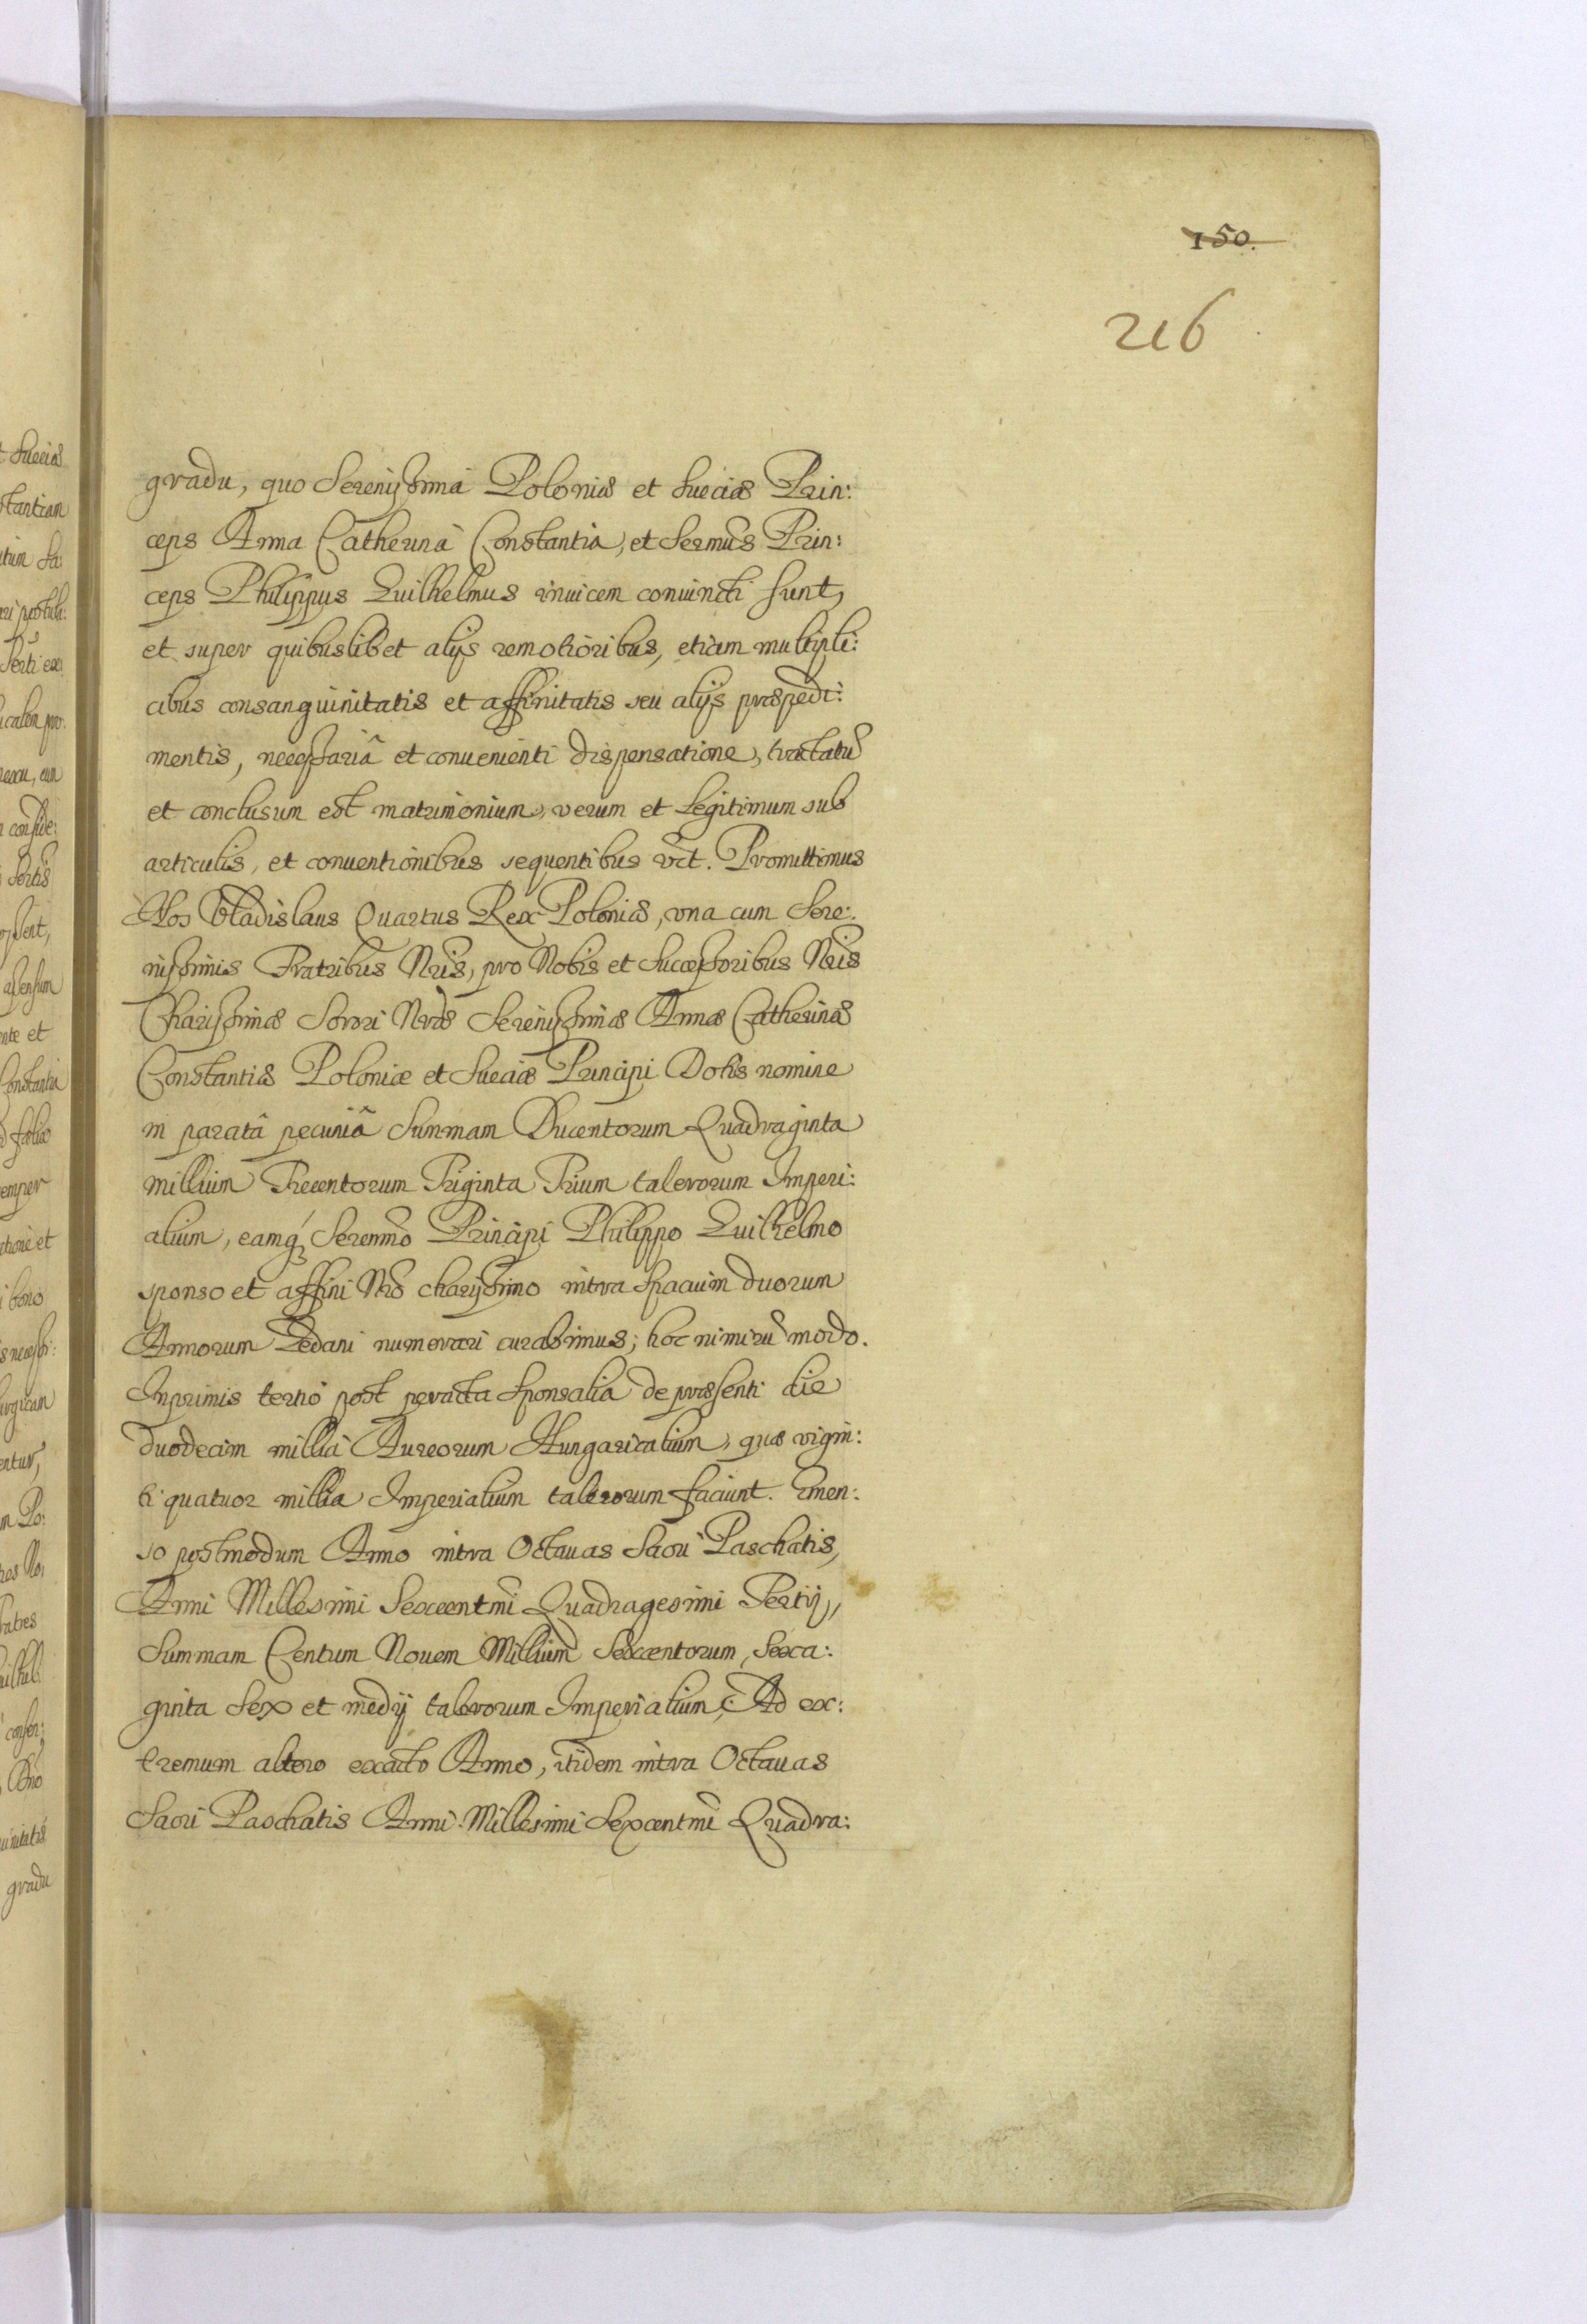 150.
216
gradu, quo Serenissima Poloniæ et Sueciæ Prin:
ceps Anna Catherina Constantia, et Sermus Prin:
ceps Philippus Guilhelmus inuicem conuincti sunt,
et super quibuslibet alijs remotioribus, etiam multipli:
cibus consanguinitatis et affinitatis seu alijs præpedi:
mentis, necessariâ et conuenienti dispensatione, tractatũ
et conclusum est matrimonium, verum et Legitimum sub
articulis, et conuentionibus sequentibus vēt. Promittimus
Nos Vladislaus Quartus Rex Poloniæ, vna cum Sere:
nissimis Fratribus Nris, pro Nobis et Successoribus Nris
Charissimæ Sorori Nræ Serenissimæ Annæ Catherinæ
Constantiæ Poloniæ et Sueciæ Principi Dotis nomine
in paratâ pecuniâ Summam Ducentorum Quadraginta
millium Trecentorum Triginta Trium talerorum Imperi:
alium, eamq́ Serenmo Principi Philippo Guilhelmo
sponso et affini Nro charissimo intra spacium duorum
Annorum Gedani numerari curabimus; hoc nimirũ modo.
Inprimis tertio post peracta Sponsalia de præsenti die
duodecim millia Aureorum Hungaricalium, quæ vigin:
ti quatuor millia Imperialium talerorum faciunt. Emen:
so postmodum Anno intra Octauas Sacri Paschatis,
Anni Millesimi Sexcentmi Quadragesimi Tertij,
Summam Centum Nouem Millium Sexcentorum, Sexa:
ginta Sex et medij talerorum Imperialium; Ad ex:
tremum altero exacto Anno, itidem intra Octauas
Sacri Paschatis Anni Millesimi Sexcentmi Quadra: